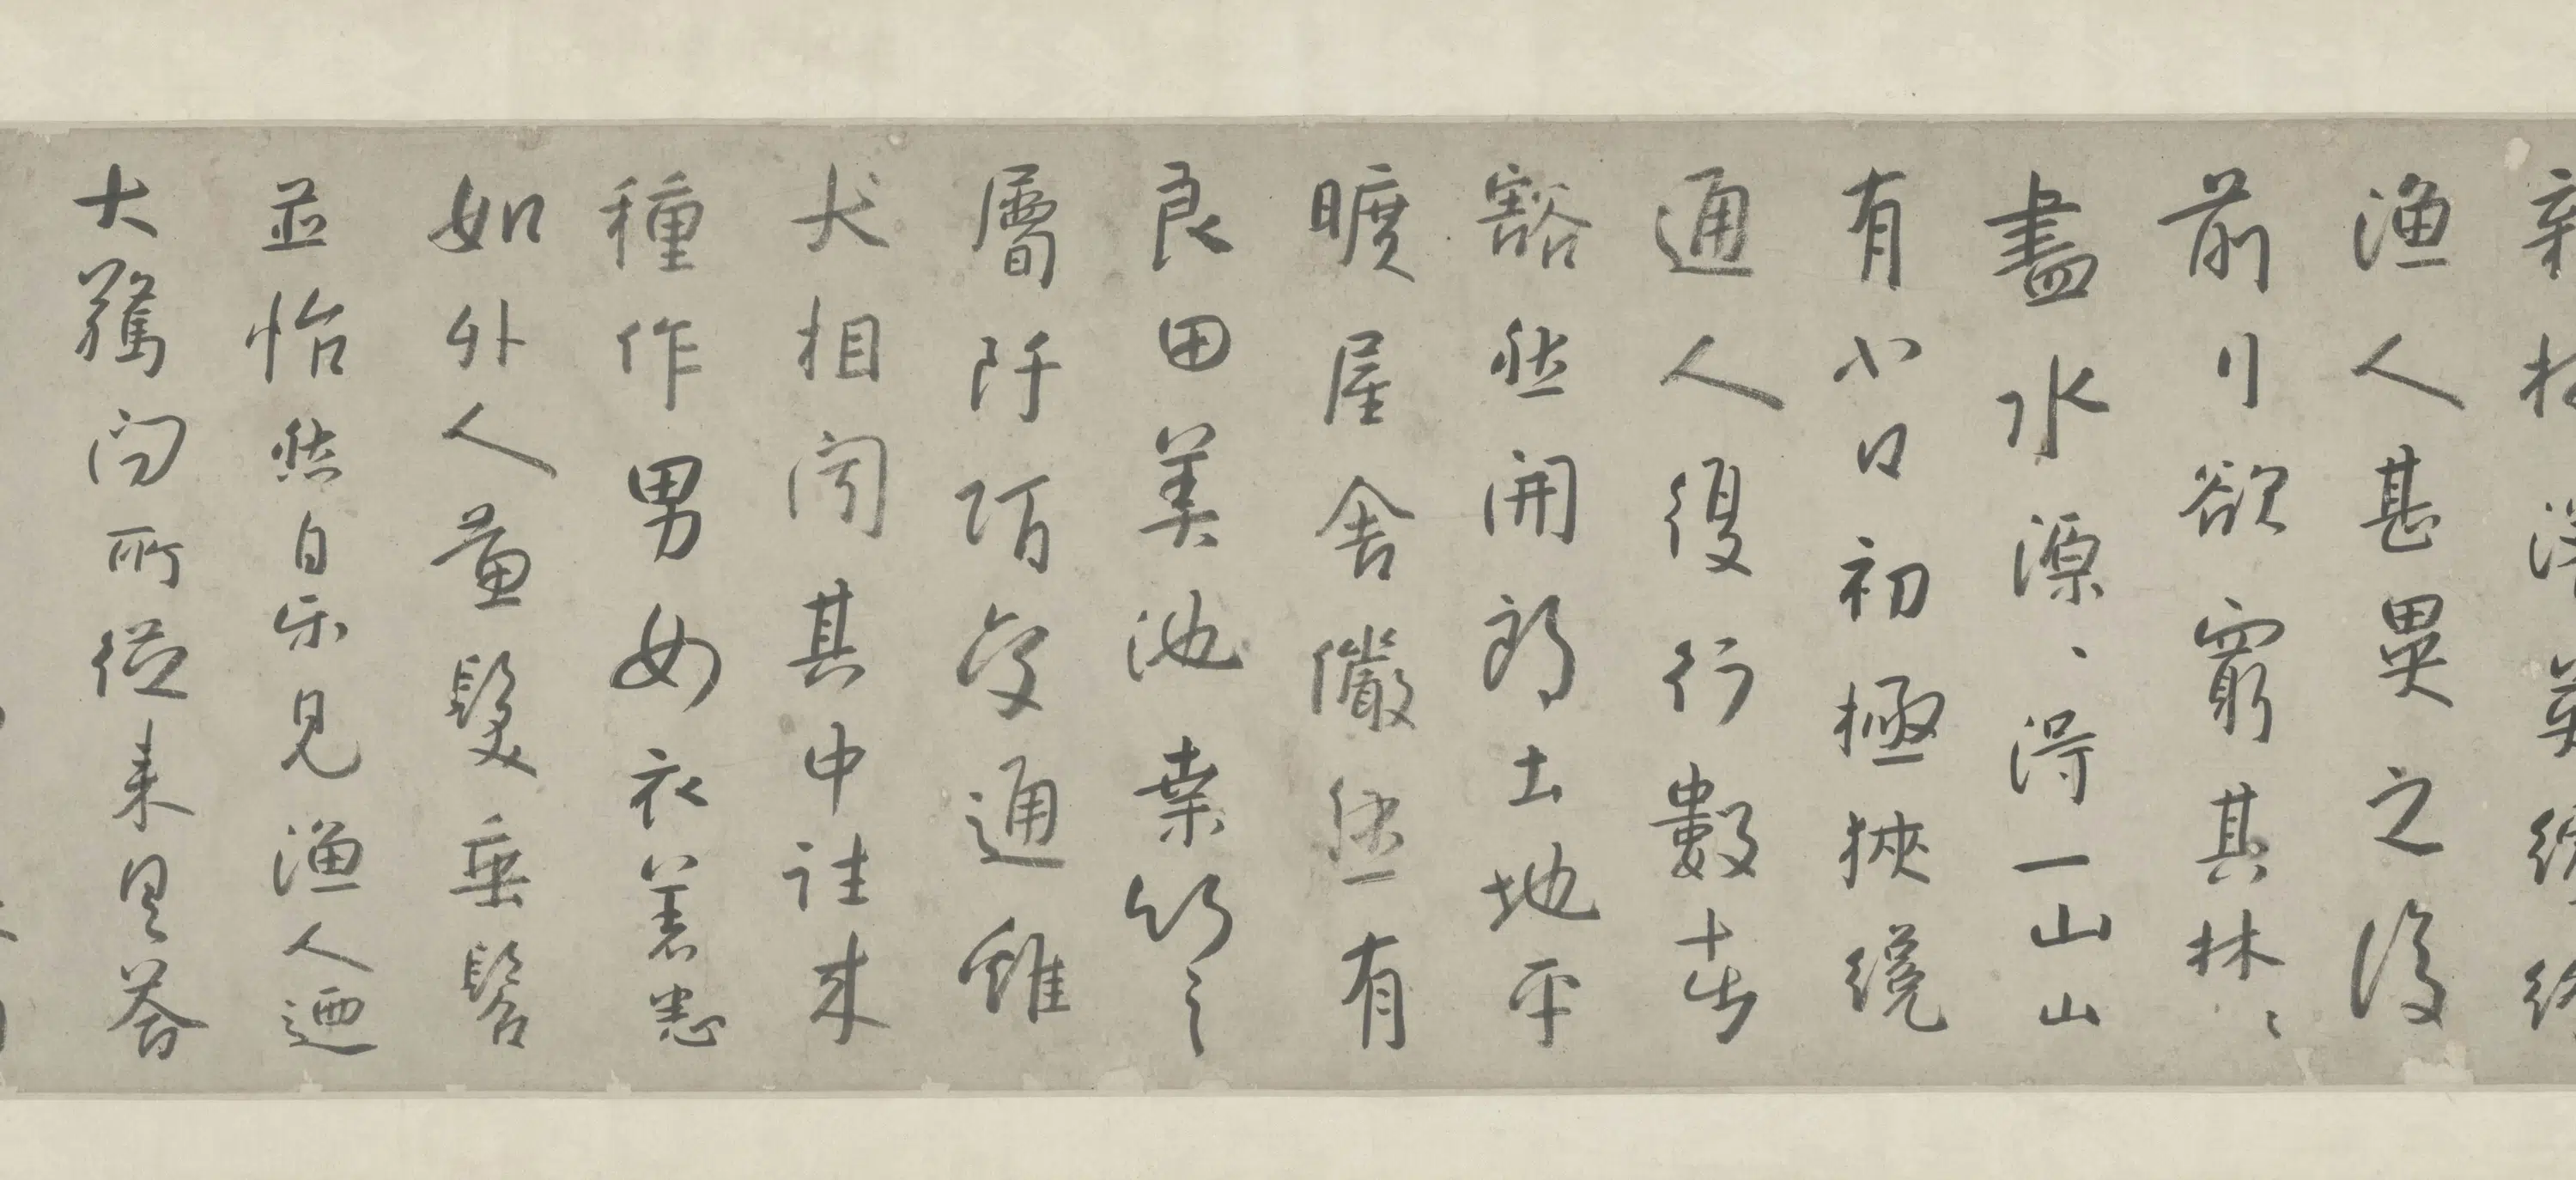 渔人甚異之復
前行欲窮其林〻
盡水源〻得一山山
有小口初極狹纔
通人復行數十步
豁然開朗土地平
曠屋舍儼然有
良田美池桑竹之
層阡陌交通雞
犬相聞其中往来
種作男女衣著悉
如外人黄髮垂髫
並怡然自乐見渔人迺
大驚问所從来具荅